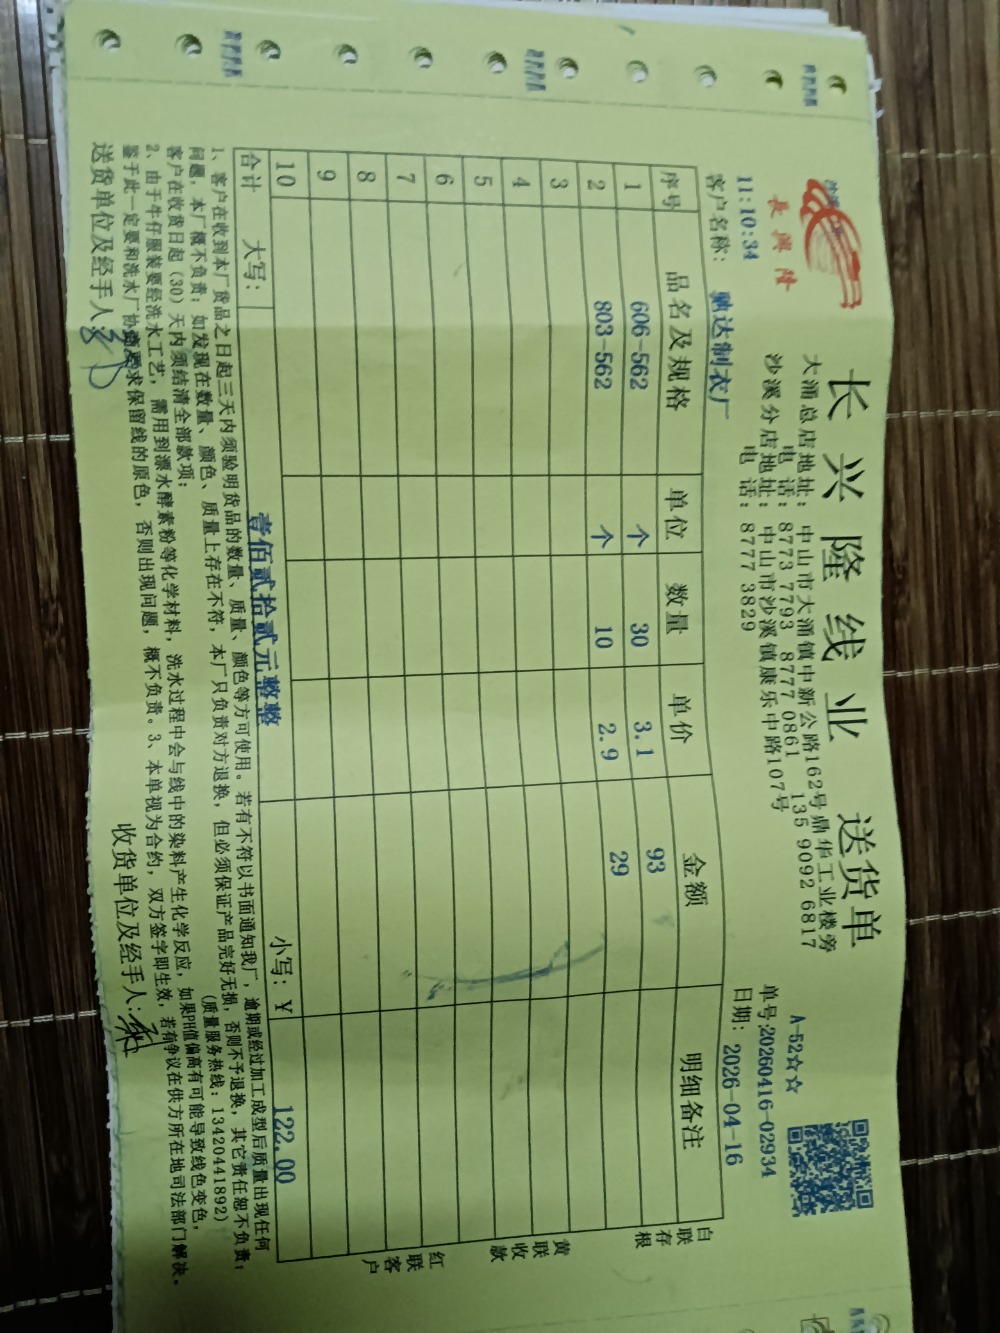 長興隆
长兴隆线业 送货单
大涌总店地址：中山市大涌镇中新公路162号鼎华工业楼旁
电 话：8773 7793 8777 0861 135 9092 6817
沙溪分店地址：中山市沙溪镇康乐中路107号
电 话：8777 3829
A-52☆☆
单号:20260416-02934
11:10:34
日期：2026-04-16
客户名称：驰达制衣厂
序号 品名及规格 单位 数量 单价 金额 明细备注
1 606-562 个 30 3.1 93
2 803-562 个 10 2.9 29
3
4
5
6
7
8
9
10
合计 大写：壹佰贰拾贰元整整 小写：¥ 122.00
白联存根
黄联收款
红联客户
1、客户在收到本厂货品之日起三天内须验明货品的数量、质量、颜色等方可使用。若有不符以书面通知我厂，逾期或经过加工成型后质量出现任何
问题，本厂概不负责；如发现在数量、颜色、质量上存在不符，本厂只负责对方退换，但必须保证产品完好无损，否则不予退换，其它责任恕不负责；
客户在收货日起（30）天内须结清全部款项； (质量服务热线：13420441892)
2、由于牛仔服装要经洗水工艺，需用到漂水酵素粉等化学材料，洗水过程中会与线中的染料产生化学反应，如果PH值偏高有可能导致线色变色，
鉴于此一定要和洗水厂协商要求保留线的原色，否则出现问题，概不负责。3、本单视为合约，双方签字即生效，若有争议在供方所在地司法部门解决。
送货单位及经手人： 收货单位及经手人：